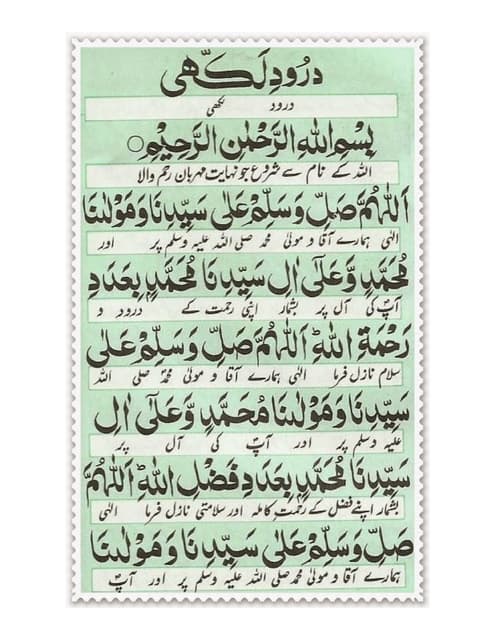 درودِ لَكّھی
درود لکھی
بِسْمِ اللهِ الرَّحْمٰنِ الرَّحِيْمِ
اللہ کے نام سے شروع جو نہایت مہربان رحم والا
اَللّٰهُمَّ صَلِّ وَسَلِّمْ عَلٰى سَيِّدِنَا وَمَوْلٰنَا
الٰہی ہمارے آقا و مولیٰ محمد صلی اللہ علیہ وسلم پر اور
مُحَمَّدٍ وَّعَلٰٓى اٰلِ سَيِّدِنَا مُحَمَّدٍۢ بِعَدَدِ
آپؐ کی آل پر بشمار اپنی رحمت کے درود و
رَحْمَةِ اللهِ ؕ اَللّٰهُمَّ صَلِّ وَسَلِّمْ عَلٰى
سلام نازل فرما الٰہی ہمارے آقا و مولیٰ محمدؐ صلی اللہ
سَيِّدِنَا وَمَوْلٰنَا مُحَمَّدٍ وَّعَلٰٓى اٰلِ
علیہ وسلم پر اور آپؐ کی آل پر
سَيِّدِنَا مُحَمَّدٍۢ بِعَدَدِ فَضْلِ اللهِ ؕ اَللّٰهُمَّ
بشمار اپنے فضل کے رحمت کاملہ اور سلامتی نازل فرما الٰہی
صَلِّ وَسَلِّمْ عَلٰى سَيِّدِنَا وَمَوْلٰنَا
ہمارے آقا و مولیٰ محمد صلی اللہ علیہ وسلم پر اور آپؐ